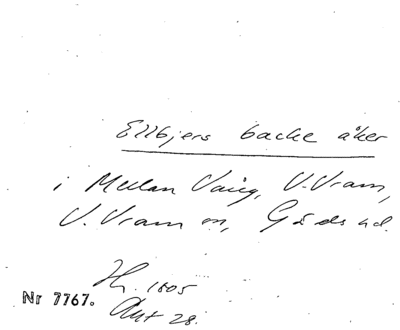 Ellbjers backe åker
i Mellan Vång, V. Vram,
V. Vram sn, Gärds hd.
Hr. 1805
Akt 28.
Nr 7767.